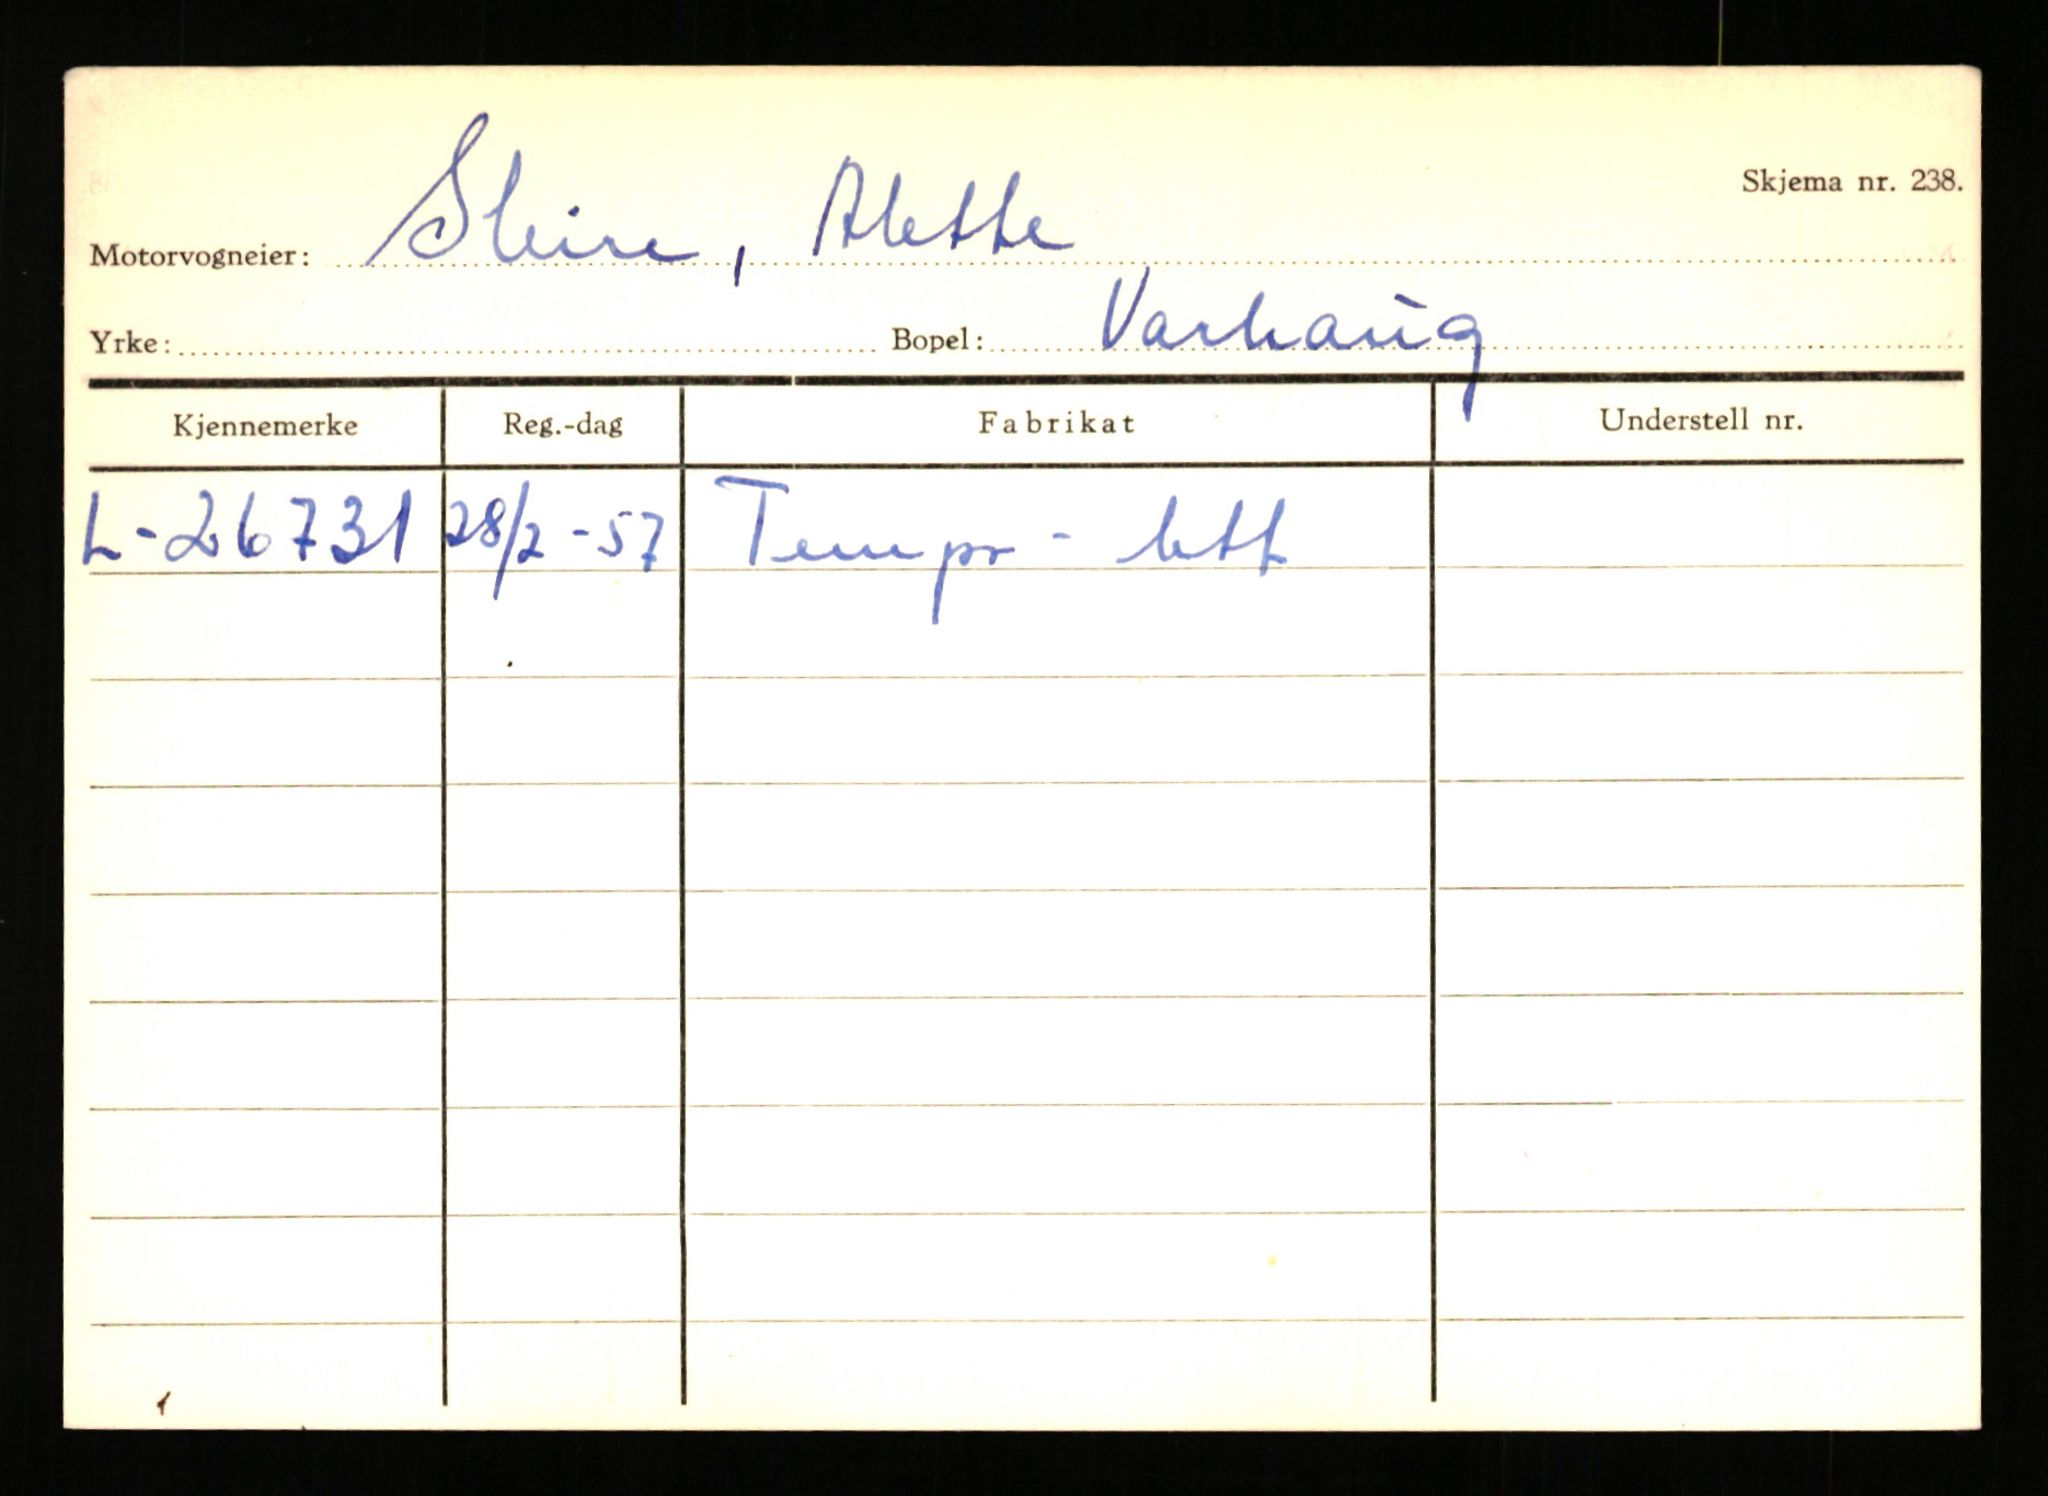 Skjema nr. 238.
Motorvogneier: Sleire, Alette
Yrke: Bopel: Varhaug
Kjennemerke Reg.-dag Fabrikat Understell nr.
L-26731 28/2-57 Tempo - lett